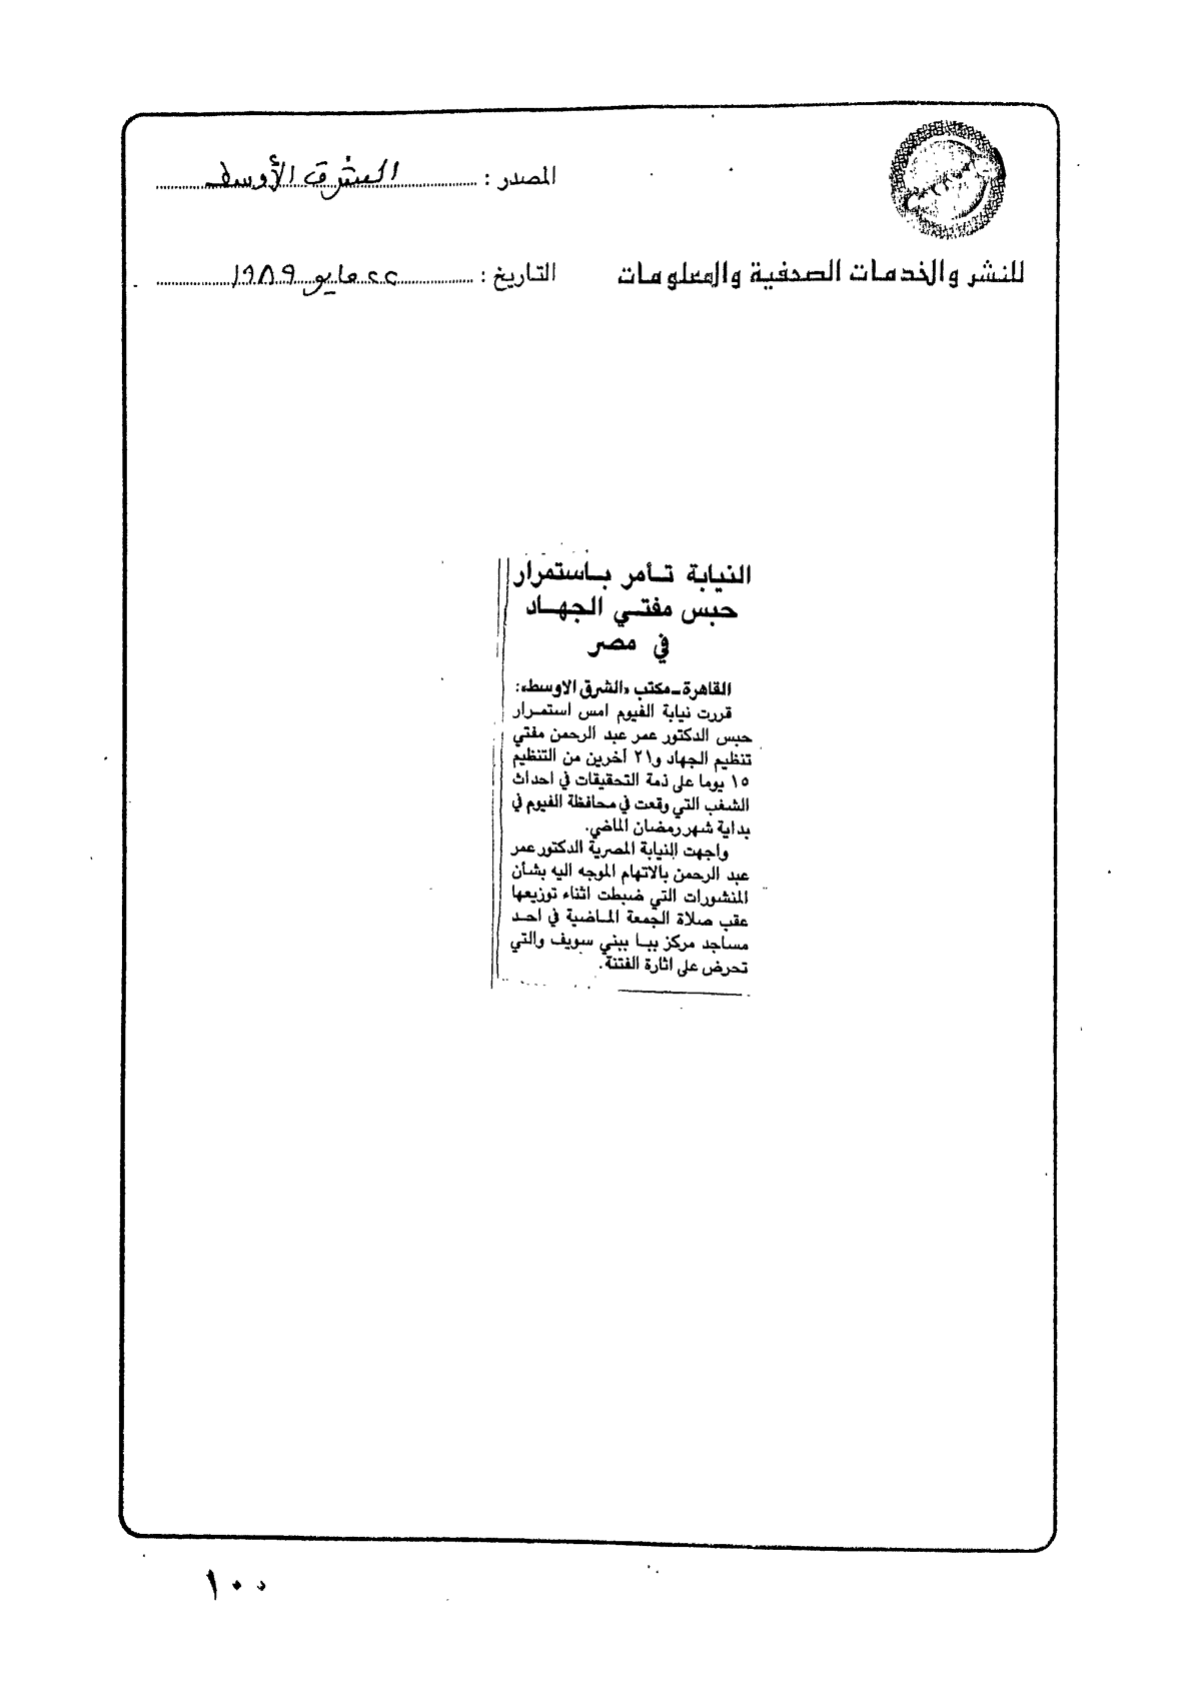 المصدر : الشرق الأوسط
للنشر والخدمات الصحفية والمعلومات
التاريخ : ٢٢ مايو ١٩٨٩
النيابة تأمر باستمرار
حبس مفتي الجهاد
في مصر
القاهرة ـ مكتب «الشرق الاوسط»:
قررت نيابة الفيوم امس استمرار
حبس الدكتور عمر عبد الرحمن مفتي
تنظيم الجهاد و٢١ آخرين من التنظيم
١٥ يوما على ذمة التحقيقات في احداث
الشغب التي وقعت في محافظة الفيوم في
بداية شهر رمضان الماضي.
واجهت النيابة المصرية الدكتور عمر
عبد الرحمن بالاتهام الموجه اليه بشأن
المنشورات التي ضبطت اثناء توزيعها
عقب صلاة الجمعة الماضية في احد
مساجد مركز ببا ببني سويف والتي
تحرض على اثارة الفتنة.
١٠٠